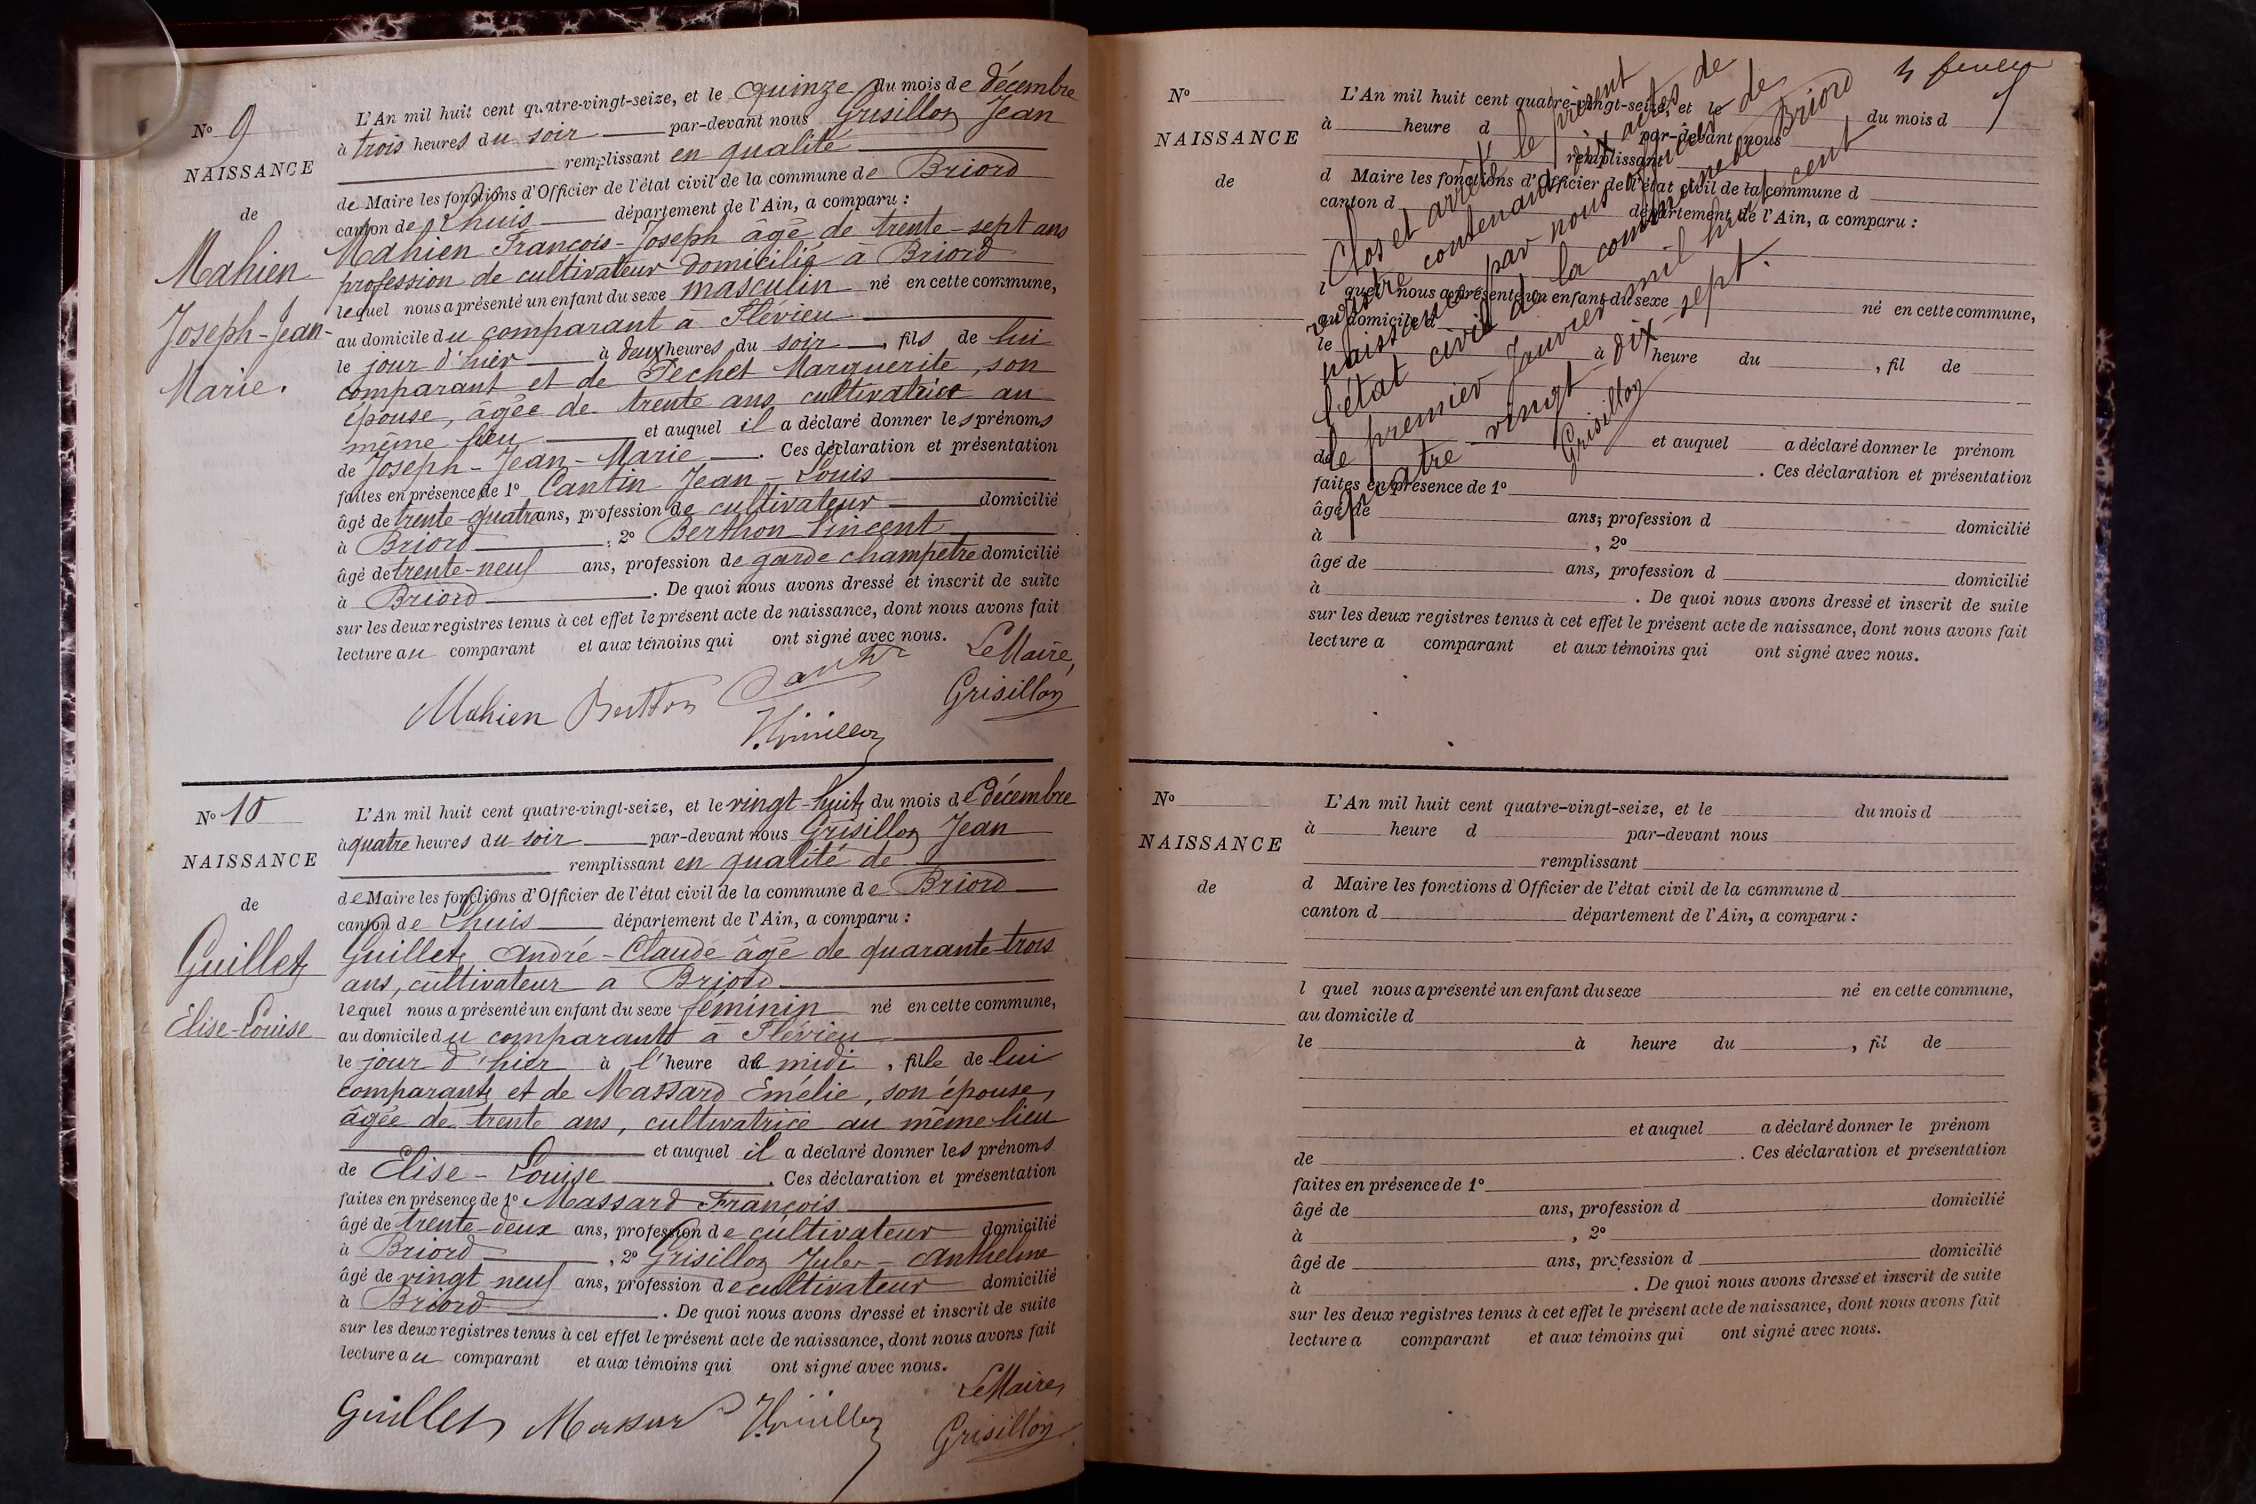 N° 9
NAISSANCE
de
Mahien
Joseph-Jean-
Marie.
L'An mil huit cent quatre-vingt-seize, et le quinze du mois de décembre
à trois heures du soir par-devant nous Grisillon Jean
remplissant en qualité
de Maire les fonctions d'Officier de l'état civil de la commune de Briord
canton de Lhuis département de l'Ain, a comparu :
Mahien François-Joseph âgé de trente-sept ans
profession de cultivateur domicilié à Briord
lequel nous a présenté un enfant du sexe masculin né en cette commune,
au domicile du comparant à Flévieu
le jour d'hier à deux heures du soir, fils de lui
comparant et de Pechet Marguerite, son
épouse, âgée de trente ans cultivatrice au
même lieu et auquel il a déclaré donner les prénoms
de Joseph-Jean-Marie. Ces déclaration et présentation
faites en présence de 1° Cantin Jean-Louis
âgé de trente-quatre ans, profession de cultivateur domicilié
à Briord, 2° Berthon Vincent
âgé de trente-neuf ans, profession de garde champetre domicilié
à Briord. De quoi nous avons dressé et inscrit de suite
sur les deux registres tenus à cet effet le présent acte de naissance, dont nous avons fait
lecture au comparant et aux témoins qui ont signé avec nous.
Le Maire,
Mahien Berthon Grisillon
N° 10
NAISSANCE
de
Guillet
Elise-Louise
L'An mil huit cent quatre-vingt-seize, et le vingt-huit du mois de décembre
à quatre heures du soir par-devant nous Grisillon Jean
remplissant en qualité de
de Maire les fonctions d'Officier de l'état civil de la commune de Briord
canton de Lhuis département de l'Ain, a comparu :
Guillet André-Claude âgé de quarante-trois
ans, cultivateur a Briord
lequel nous a présenté un enfant du sexe féminin né en cette commune,
au domicile du comparant à Flévieu
le jour d'hier à l'heure de midi, fille de lui
comparant et de Massard Emélie, son épouse,
âgée de trente ans, cultivatrice au même lieu
et auquel il a déclaré donner les prénoms
de Elise-Louise. Ces déclaration et présentation
faites en présence de 1° Massard François
âgé de trente-deux ans, profession de cultivateur domicilié
à Briord, 2° Grisillon Jules-Anthelme
âgé de vingt neuf ans, profession de cultivateur domicilié
à Briord. De quoi nous avons dressé et inscrit de suite
sur les deux registres tenus à cet effet le présent acte de naissance, dont nous avons fait
lecture au comparant et aux témoins qui ont signé avec nous.
Le Maire,
Guillet Grisillon
N°
NAISSANCE
de
L'An mil huit cent quatre-vingt-seize, et le du mois d
à heure d par-devant nous
remplissant
d Maire les fonctions d'Officier de l'état civil de la commune d
canton d département de l'Ain, a comparu :
l quel nous a présenté un enfant du sexe né en cette commune,
au domicile d
le à heure du, fil de
et auquel a déclaré donner le prénom
de. Ces déclaration et présentation
faites en présence de 1°
âgé de ans, profession d domicilié
à, 2°
âgé de ans, profession d domicilié
à. De quoi nous avons dressé et inscrit de suite
sur les deux registres tenus à cet effet le présent acte de naissance, dont nous avons fait
lecture a comparant et aux témoins qui ont signé avec nous.
Clos et arrêté le présent
registre contenant dix actes de
naissance par nous officier de
l'état civil de la commune de Briord
le premier Janvier mil huit cent
quatre-vingt-dix-sept.
Grisillon
N°
NAISSANCE
de
L'An mil huit cent quatre-vingt-seize, et le du mois d
à heure d par-devant nous
remplissant
d Maire les fonctions d'Officier de l'état civil de la commune d
canton d département de l'Ain, a comparu :
l quel nous a présenté un enfant du sexe né en cette commune,
au domicile d
le à heure du, fil de
et auquel a déclaré donner le prénom
de. Ces déclaration et présentation
faites en présence de 1°
âgé de ans, profession d domicilié
à, 2°
âgé de ans, profession d domicilié
à. De quoi nous avons dressé et inscrit de suite
sur les deux registres tenus à cet effet le présent acte de naissance, dont nous avons fait
lecture a comparant et aux témoins qui ont signé avec nous.